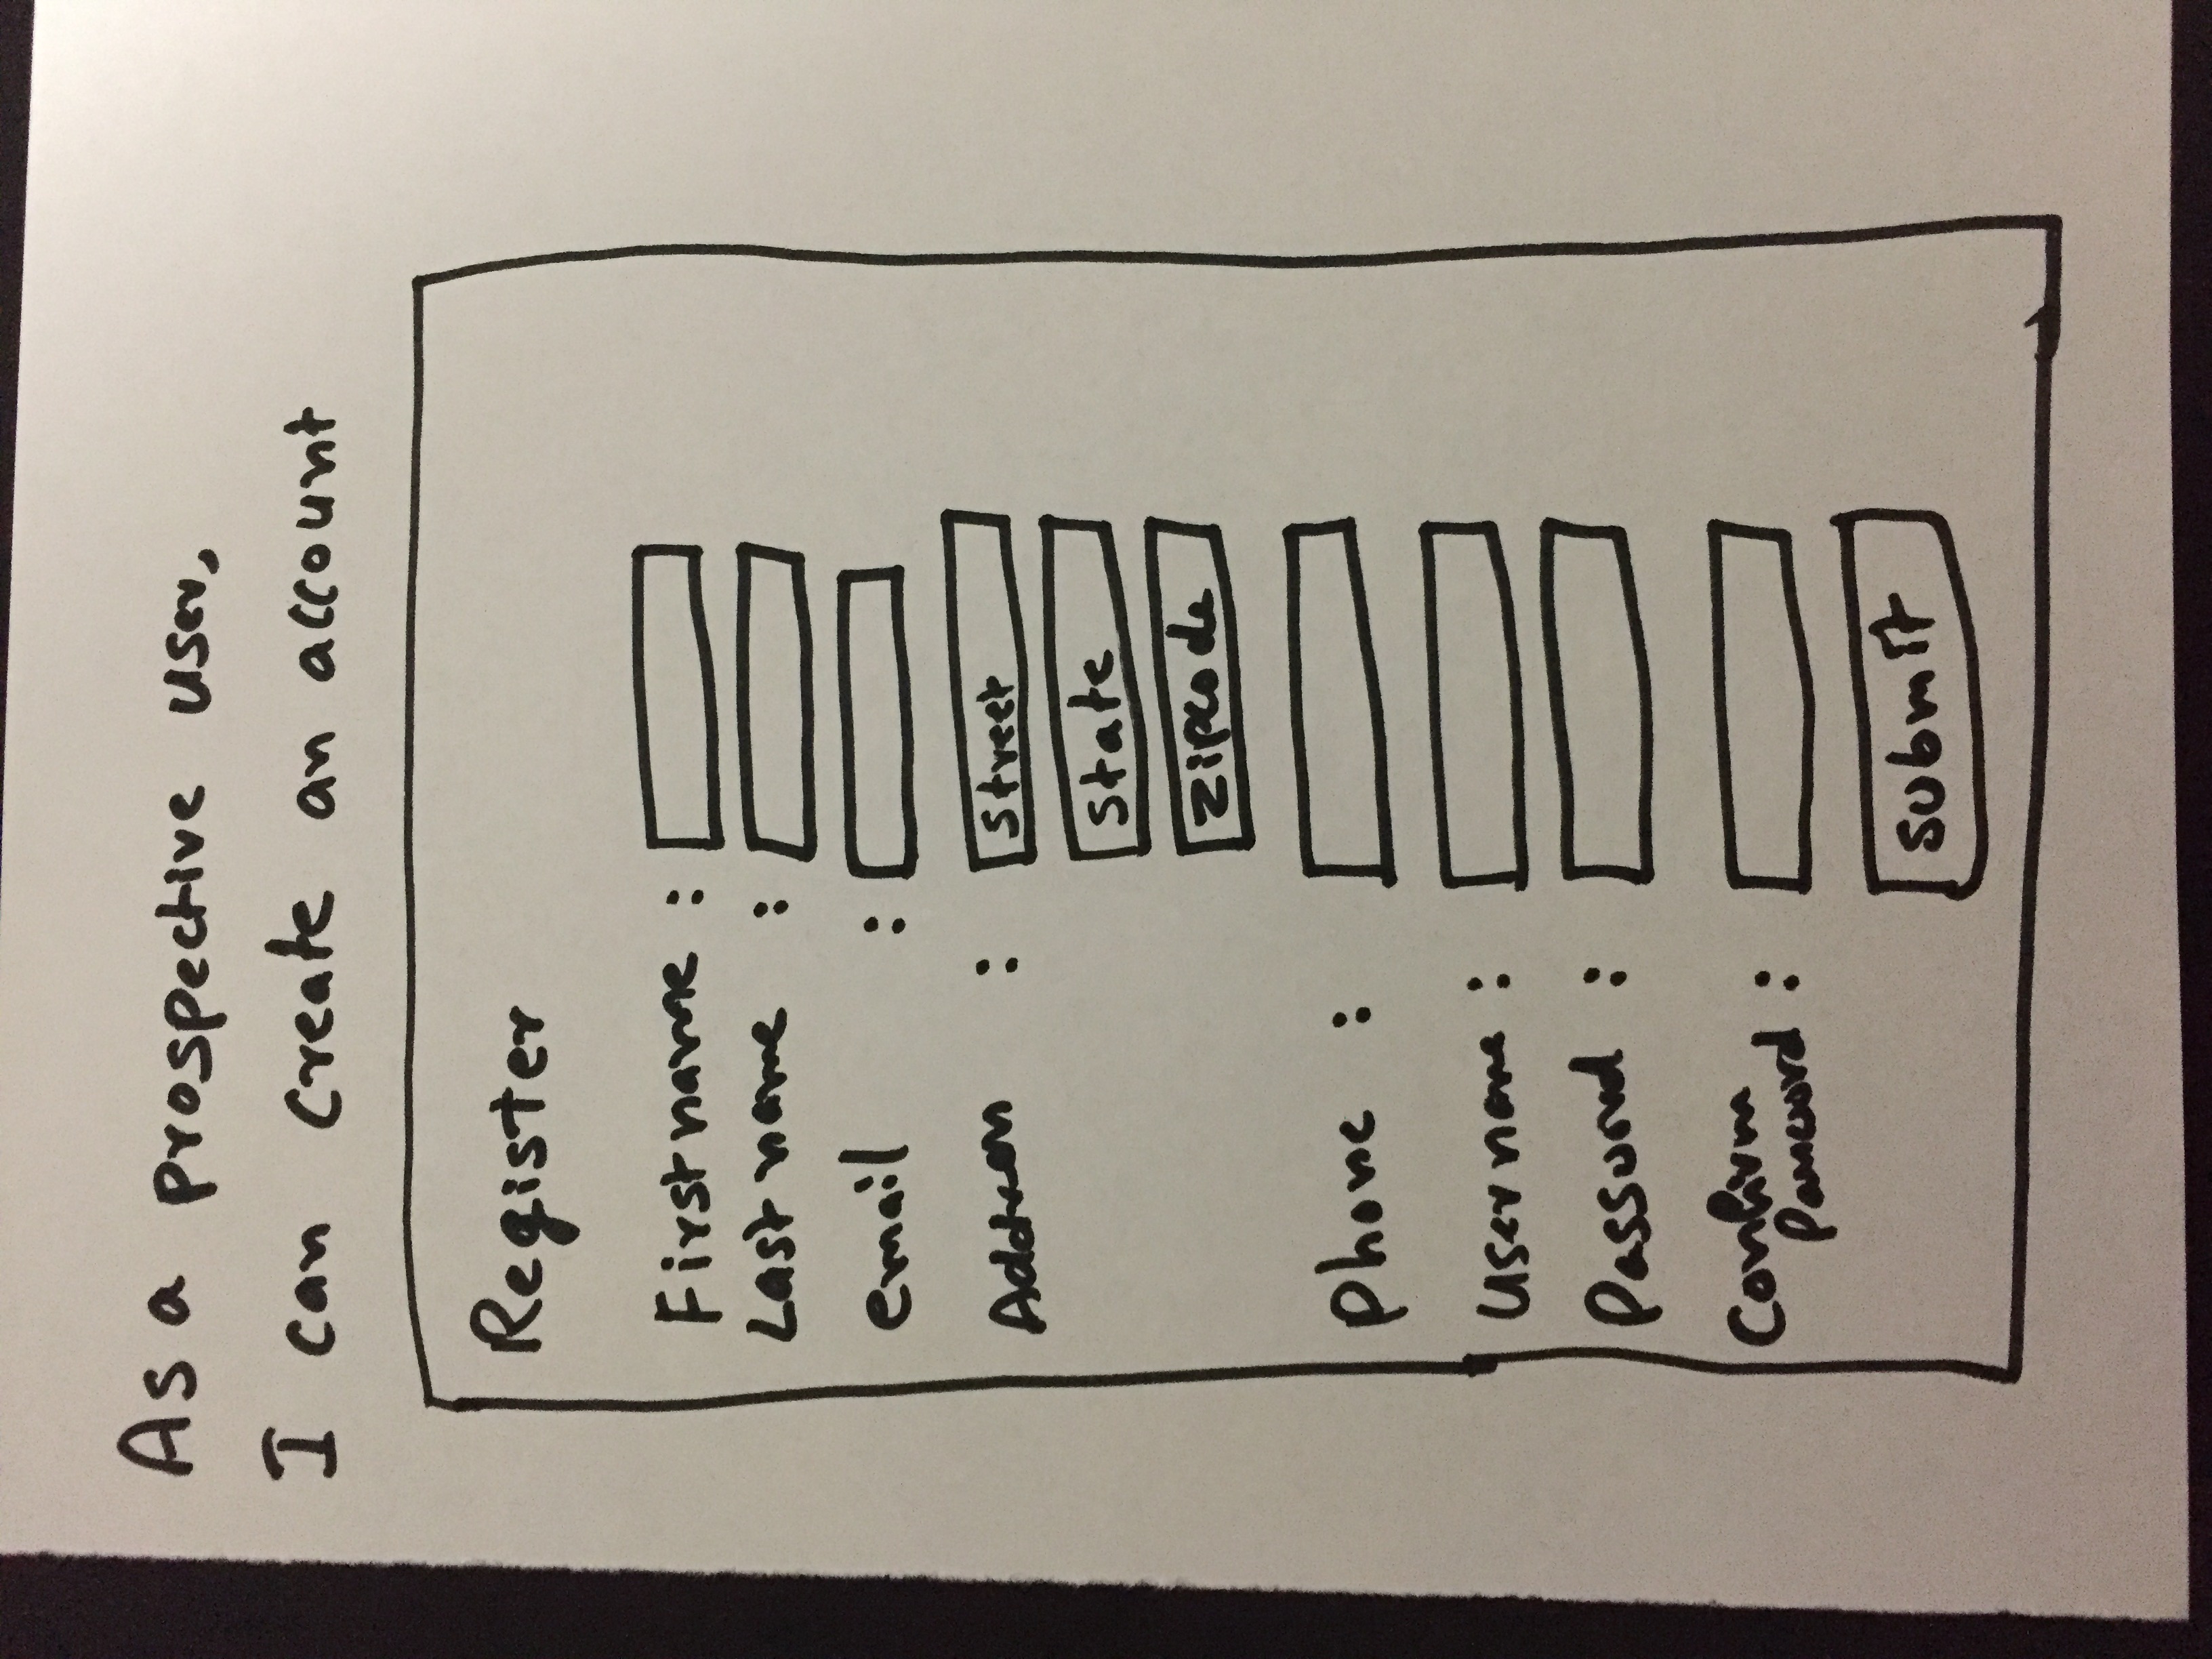 As a prospective user,
I can create an account
Register
First name :
Last name :
email :
Address : Street
State
Zipcode
Phone :
Username :
Password :
Confirm
Password :
Submit